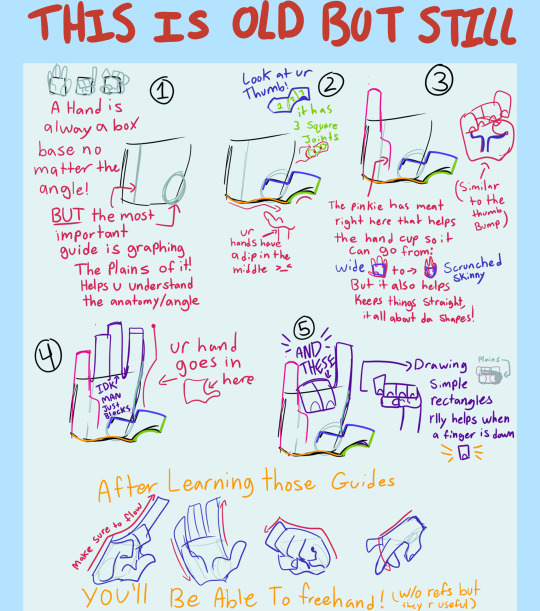 THIS IS OLD BUT STILL
1
A Hand is
alway a box
base no
matter the
angle!
BUT the most
important
guide is graphing
The Plains of it!
Helps u understand
the anatomy/angle
2
Look at ur
Thumb!
1 2 3
it has
3 Square
Joints
ur
hands have
a dip in the
middle >_<
3
The pinkie has meat
right here that helps
the hand cup so it
can go from:
wide to→ Scrunched
skinny
But it also helps
Keeps things straight,
it all about da shapes!
(Similar
to the
thumb
Bump)
4
IDK
MAN
Just
Blocks
ur hand
goes in
here
5
AND
THESE
Drawing
Simple
rectangles
rlly helps when
a finger is down
Plains
After Learning those Guides
Make sure to flow
YOU'll Be Able To freehand! (w/o refs but
they r useful)